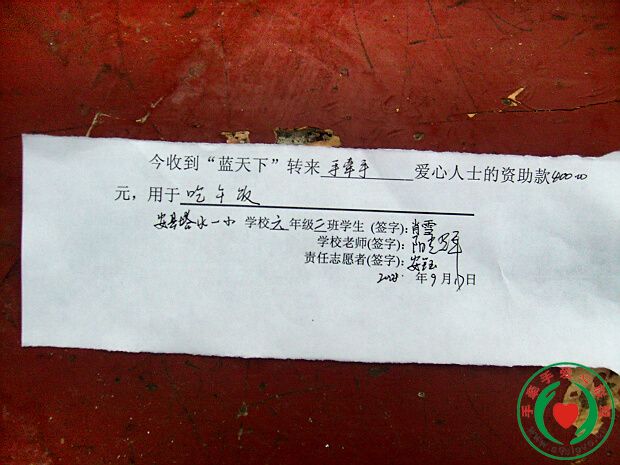 今收到“蓝天下”转来 手牵手 爱心人士的资助款400.00
元，用于 吃午饭
安县塔水一小 学校六年级二班学生 (签字):肖雪
学校老师(签字):
责任志愿者(签字):安钰
年9月 日